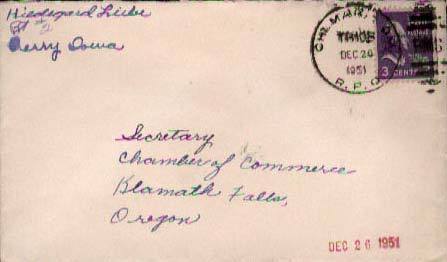 Hildegard Liebe
Rt #2
Perry Iowa
CHI. MAN.
DEC 20
1951
R.P.O.
3 CENT
Secretary
Chamber of Commerce
Klamath Falls,
Oregon
DEC 26 1951